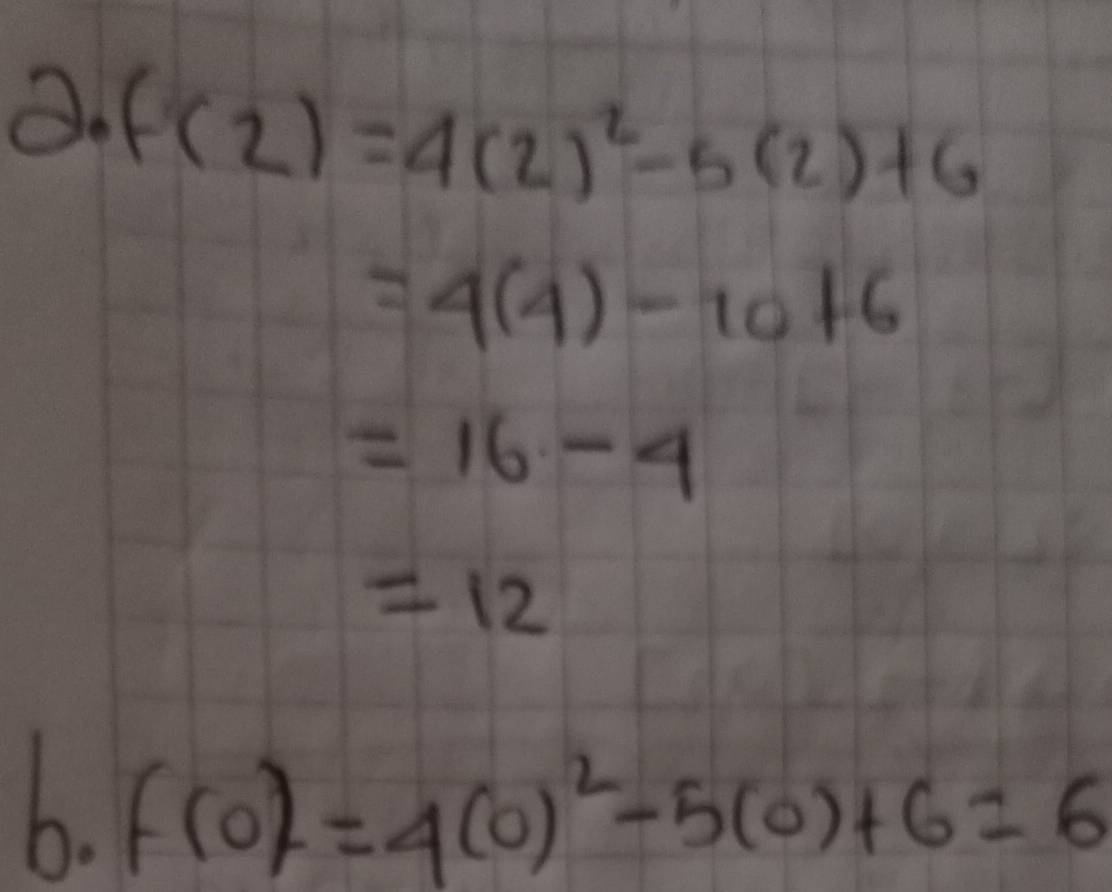 a. f(2) = 4(2)² - 5(2) + 6
= 4(4) - 10 + 6
= 16 - 4
= 12
b. f(0) = 4(0)² - 5(0) + 6 = 6